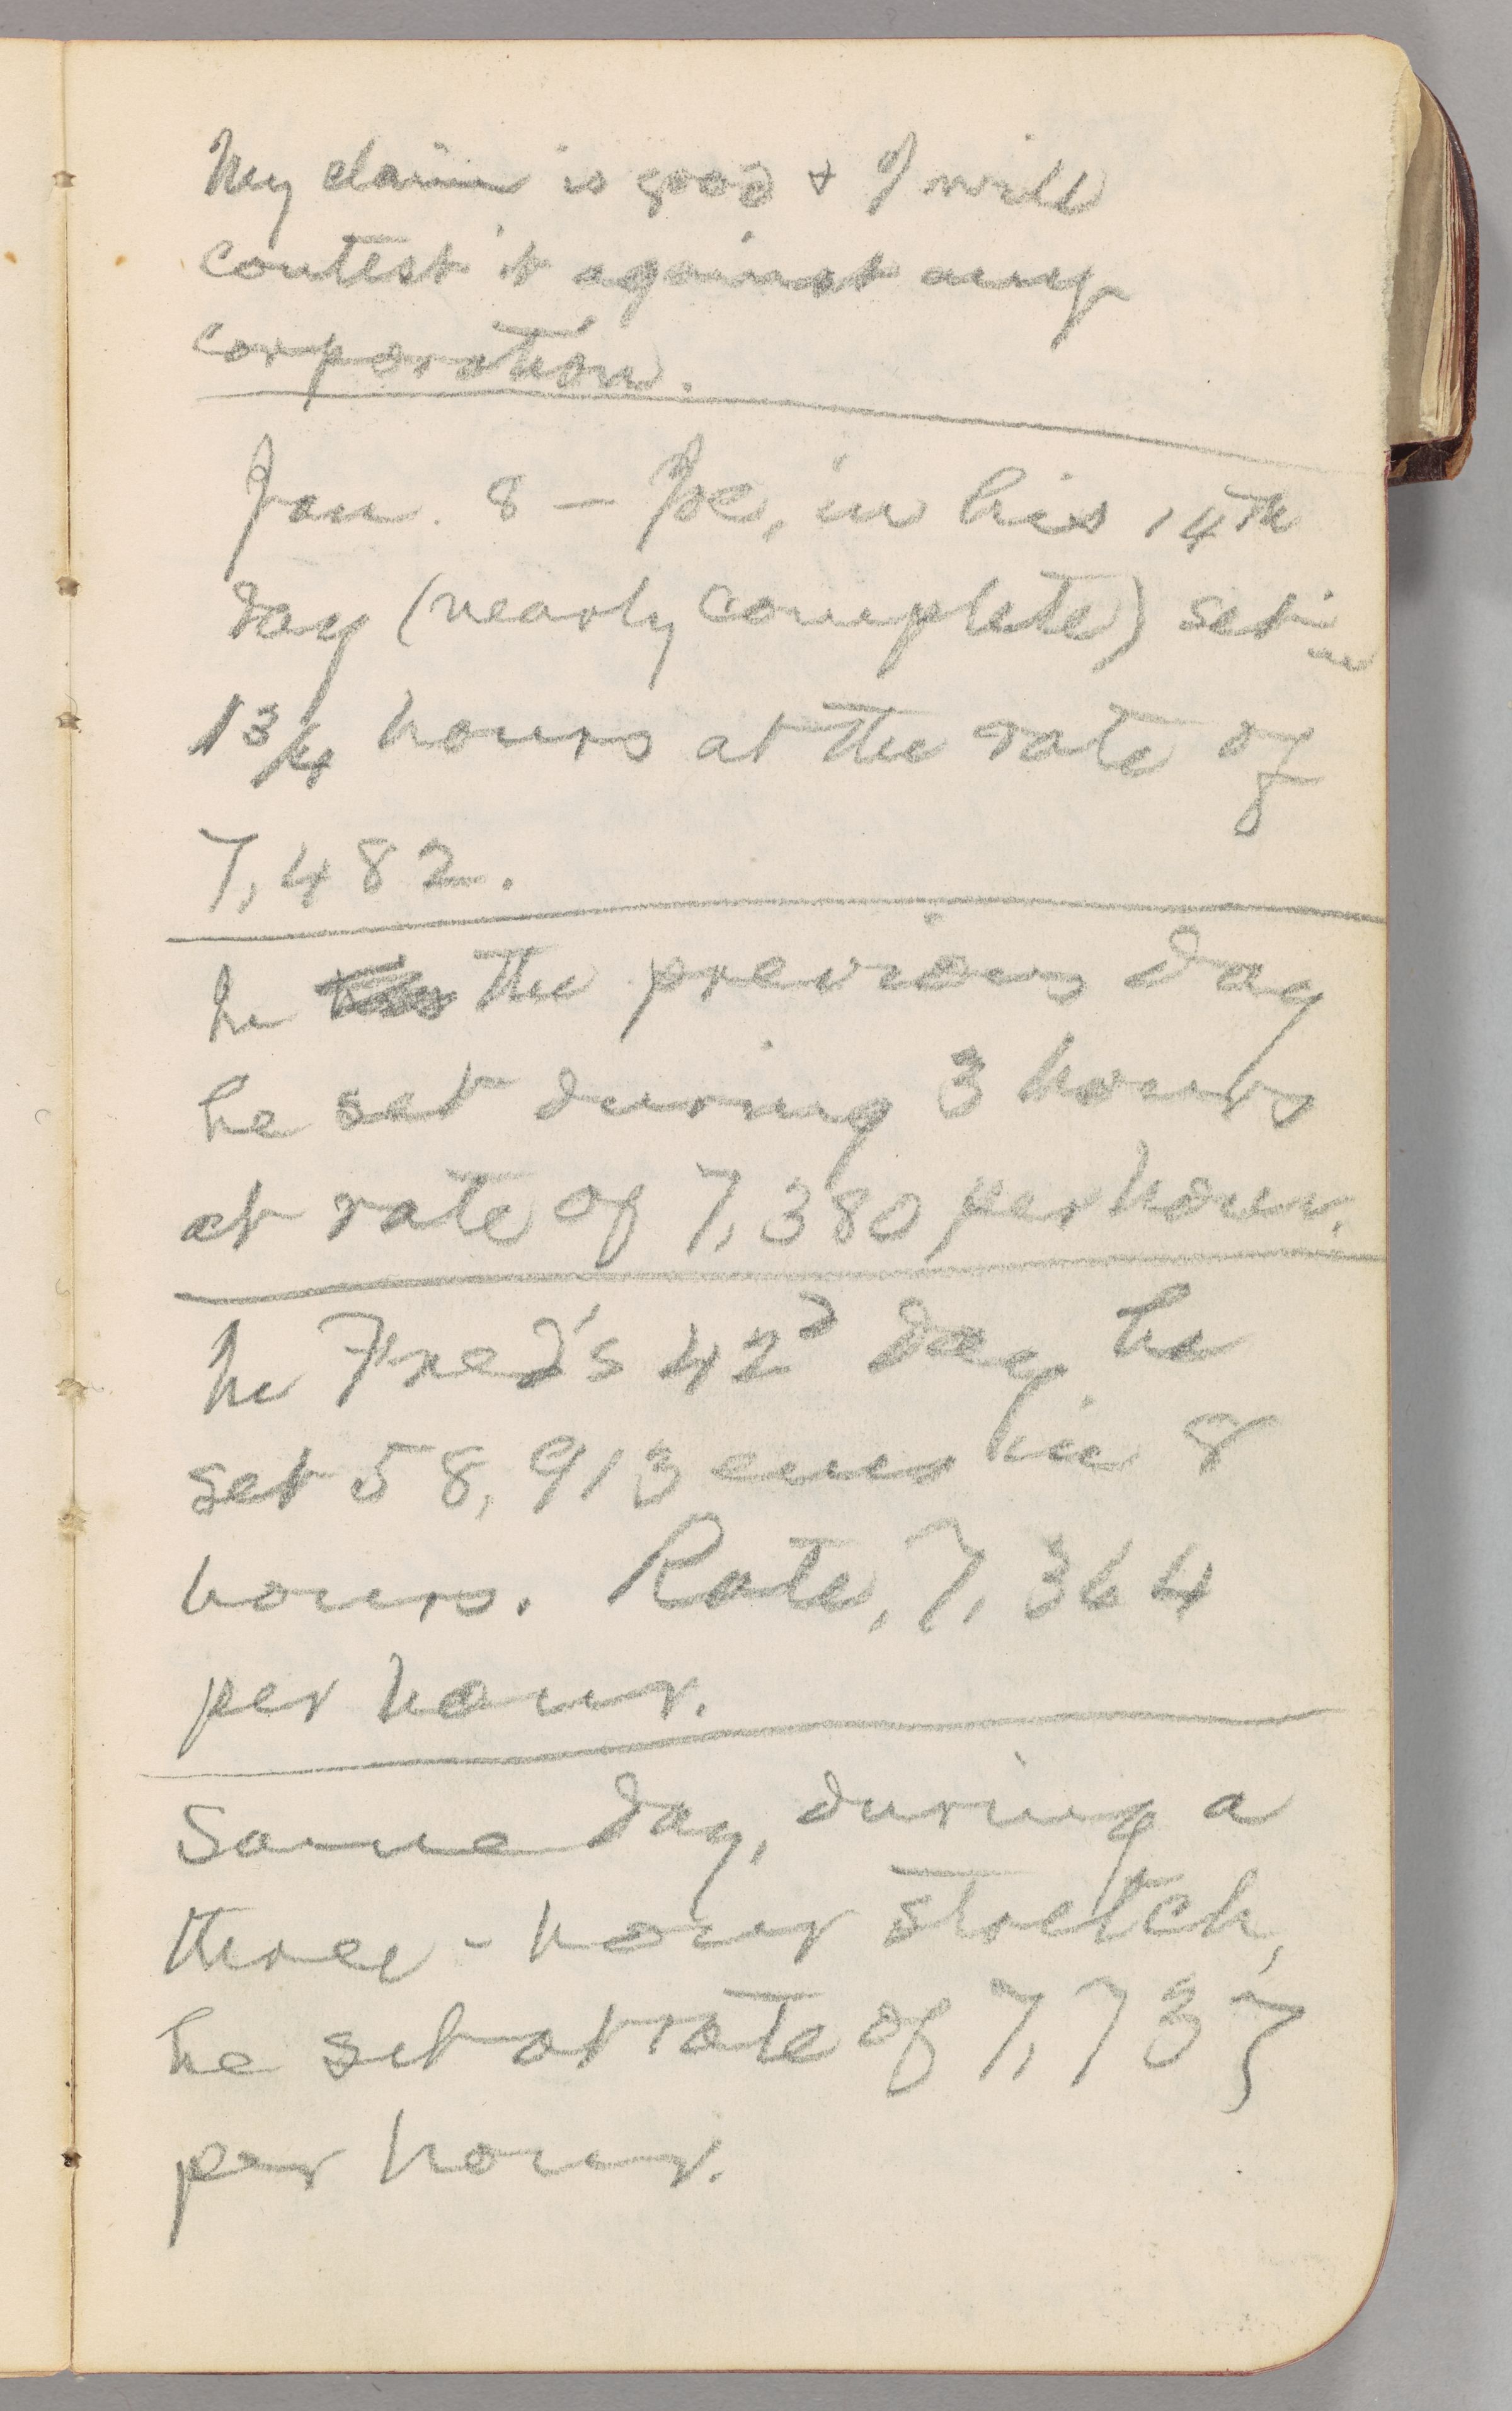 My claim is good & I will
contest it against any
corporation.
Jan. 8 — Joe, in his 14th
day (nearly complete) set in
1 3/4 hours at the rate of
7,482.
In the previous day
he set during 3 hours
at rate of 7,380 per hour.
In Fred's 42d day he
set 58,913 ems in 8
hours. Rate, 7,364
per hour.
Same day, during a
three-hour stretch,
he set at rate of 7,735
per hour.